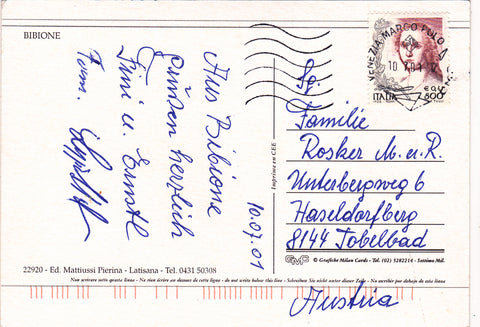 BIBIONE
Aus Bibione
grüßen herzlich
Fini u. Ernstl
Fam.
10.07.01
Imprime en CEE
VENEZIA MARCO POLO
ITALIA
800
Sg.
Familie
Rosker M.u.R.
Unterbergweg 6
Haseldorfberg
8144 Tobelbad
Austria
GMP © Grafiche Milan Cards - Tel. (02) 5282214 - Settimo Mil.
22920 - Ed. Mattiussi Pierina - Latisana - Tel. 0431 50308
Non scrivere sotto questa linea - Ne rien écrire au dessous de cette ligne - do not write below this line - Schreiben Sie nicht unter dieser Zeile - No escribir por debajo de esta linea